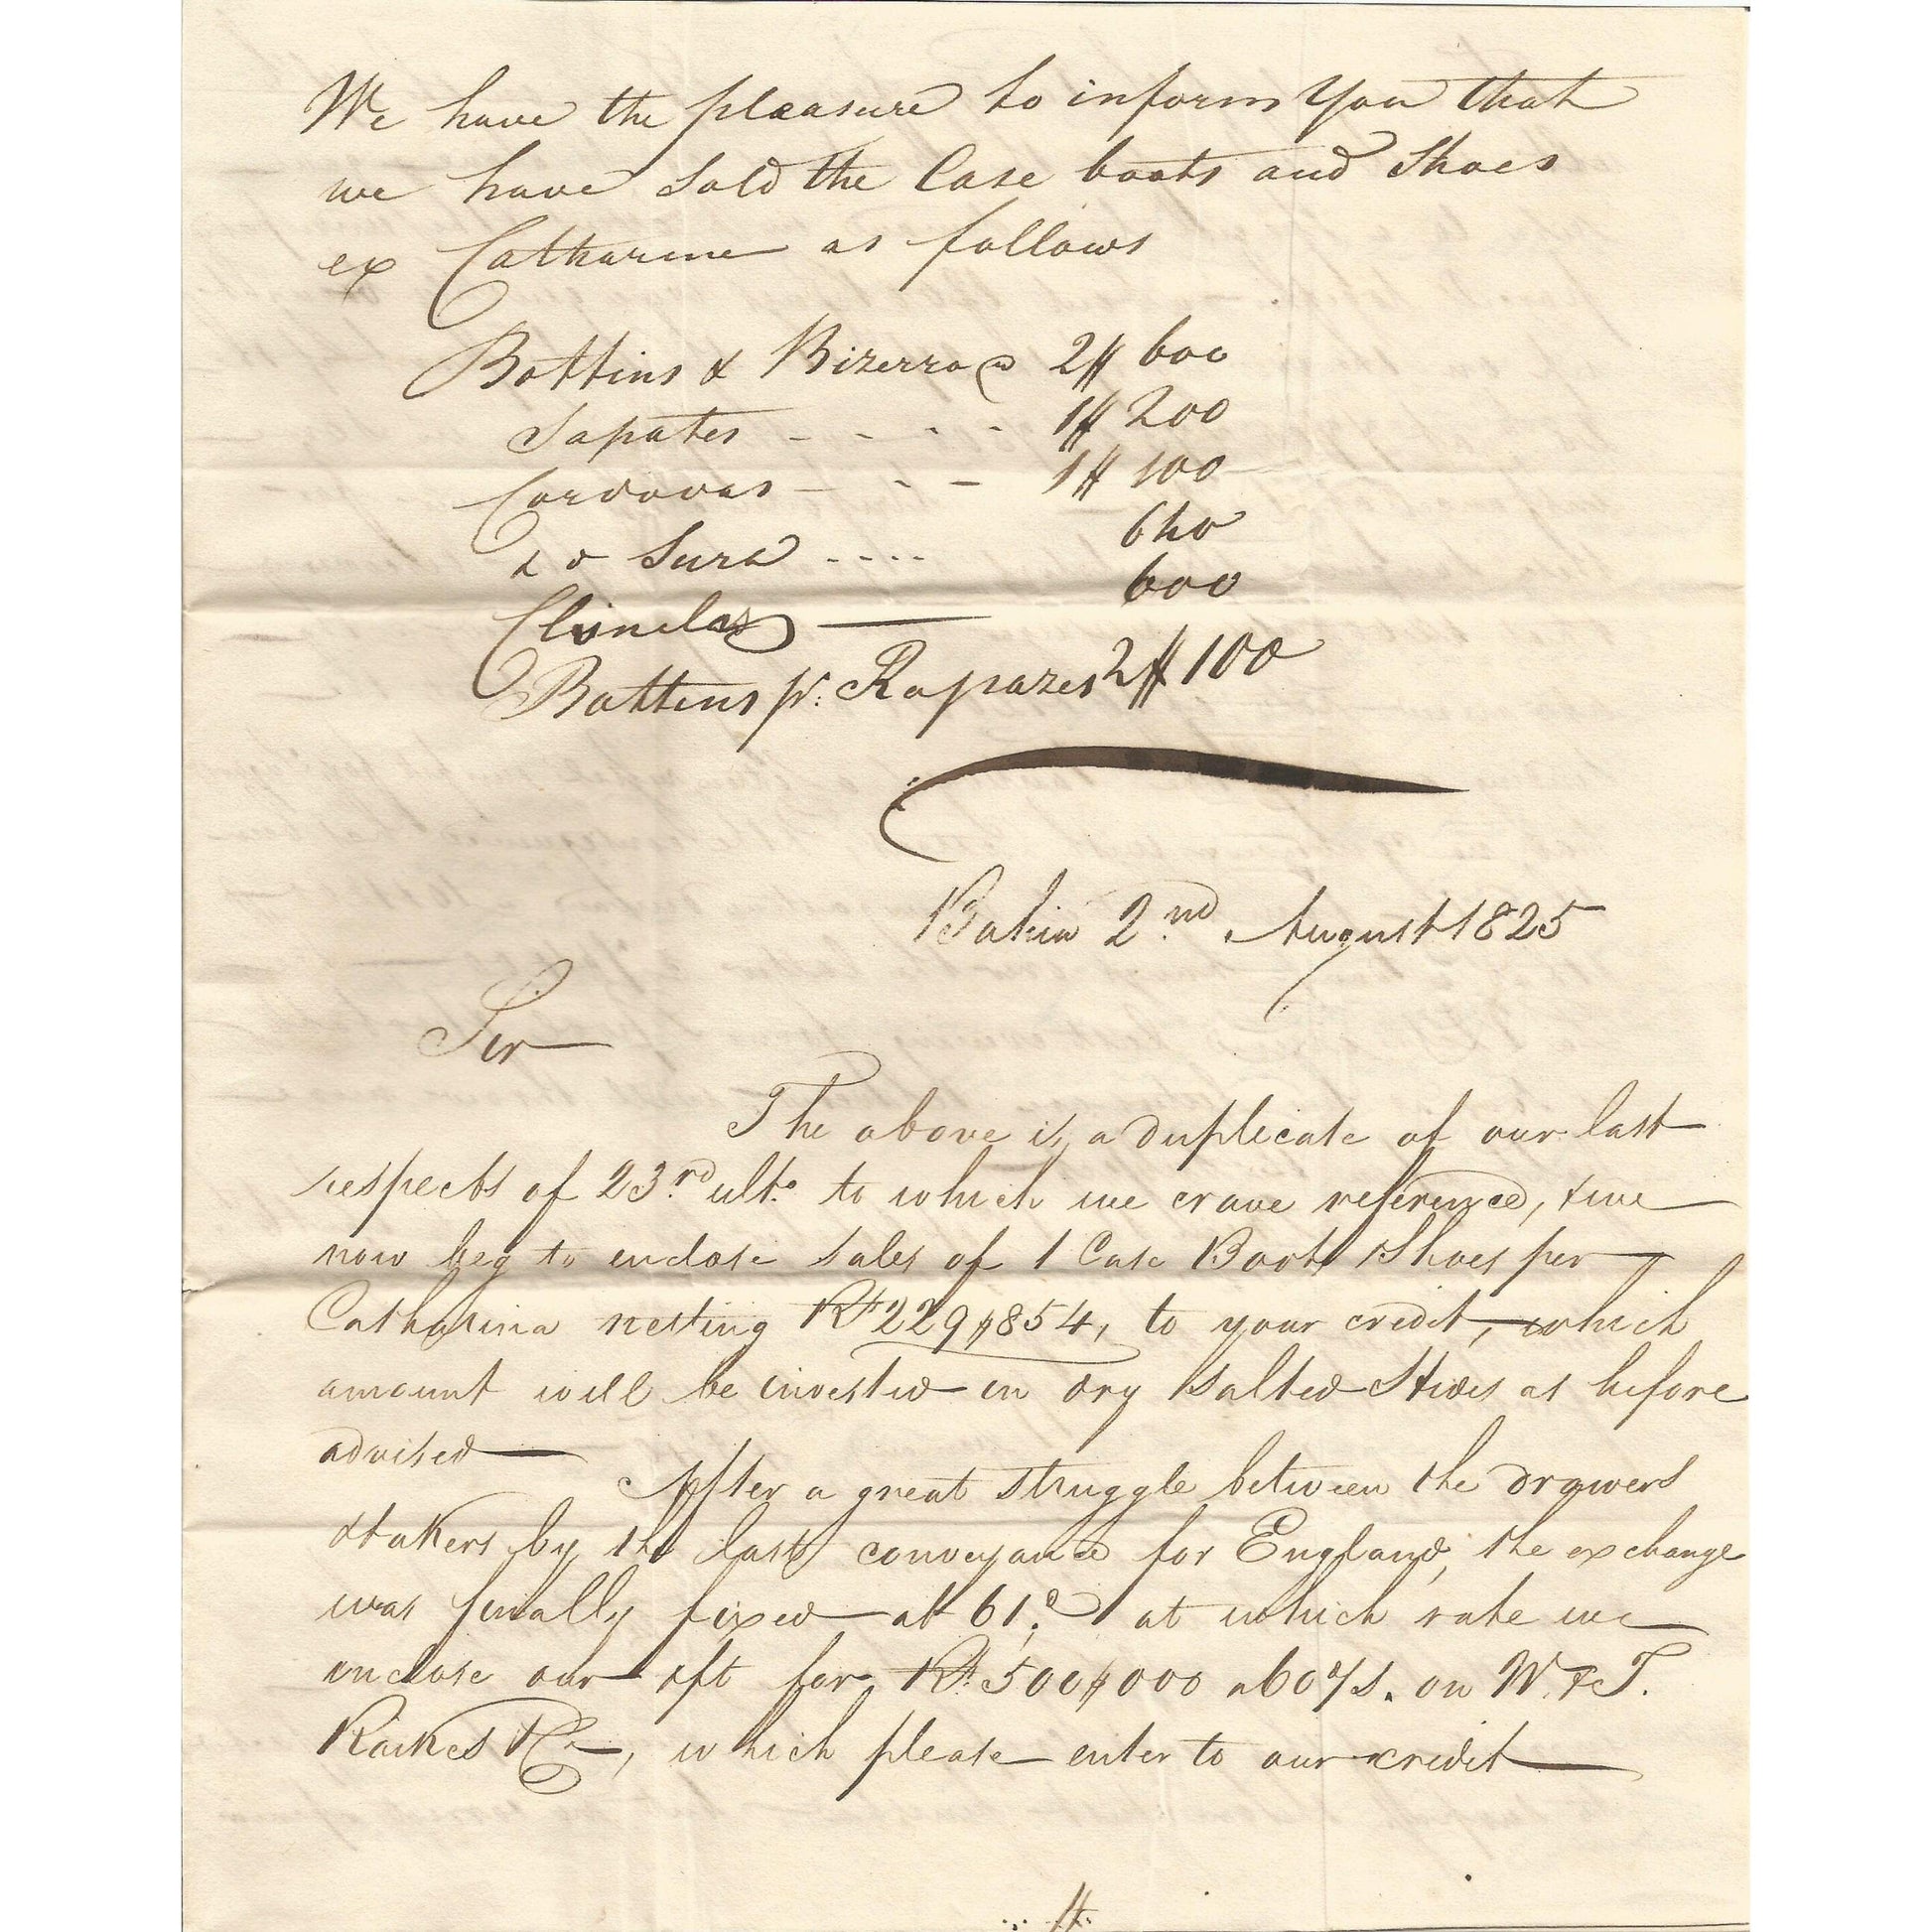 We have the pleasure to inform You that
we have Sold the Case boots and Shoes
ex Catharine as follows
Bottins & Bizerros 2$600
Sapates - - - - 1$200
Cordovas - - - 1$100
Sura - - - - 640
600
Bottins pr. Rapazes 2$100
Bahia 2nd. August 1825
Sir
The above is a duplicate of our last
respects of 23rd ulto. to which we crave reference, & we
now beg to enclose Sales of 1 Case Boots & Shoes per
Catharina netting Rs 229$854, to your credit, which
amount will be invested in dry Salted Hides as before
advised
After a great struggle between the drawers
& takers by the last conveyance for England, the exchange
was finally fixed at 61d. at which rate we
enclose our dft for Rs. 500$000 a 60 d/s. on W. & T.
Raikes & Co, which please enter to our credit